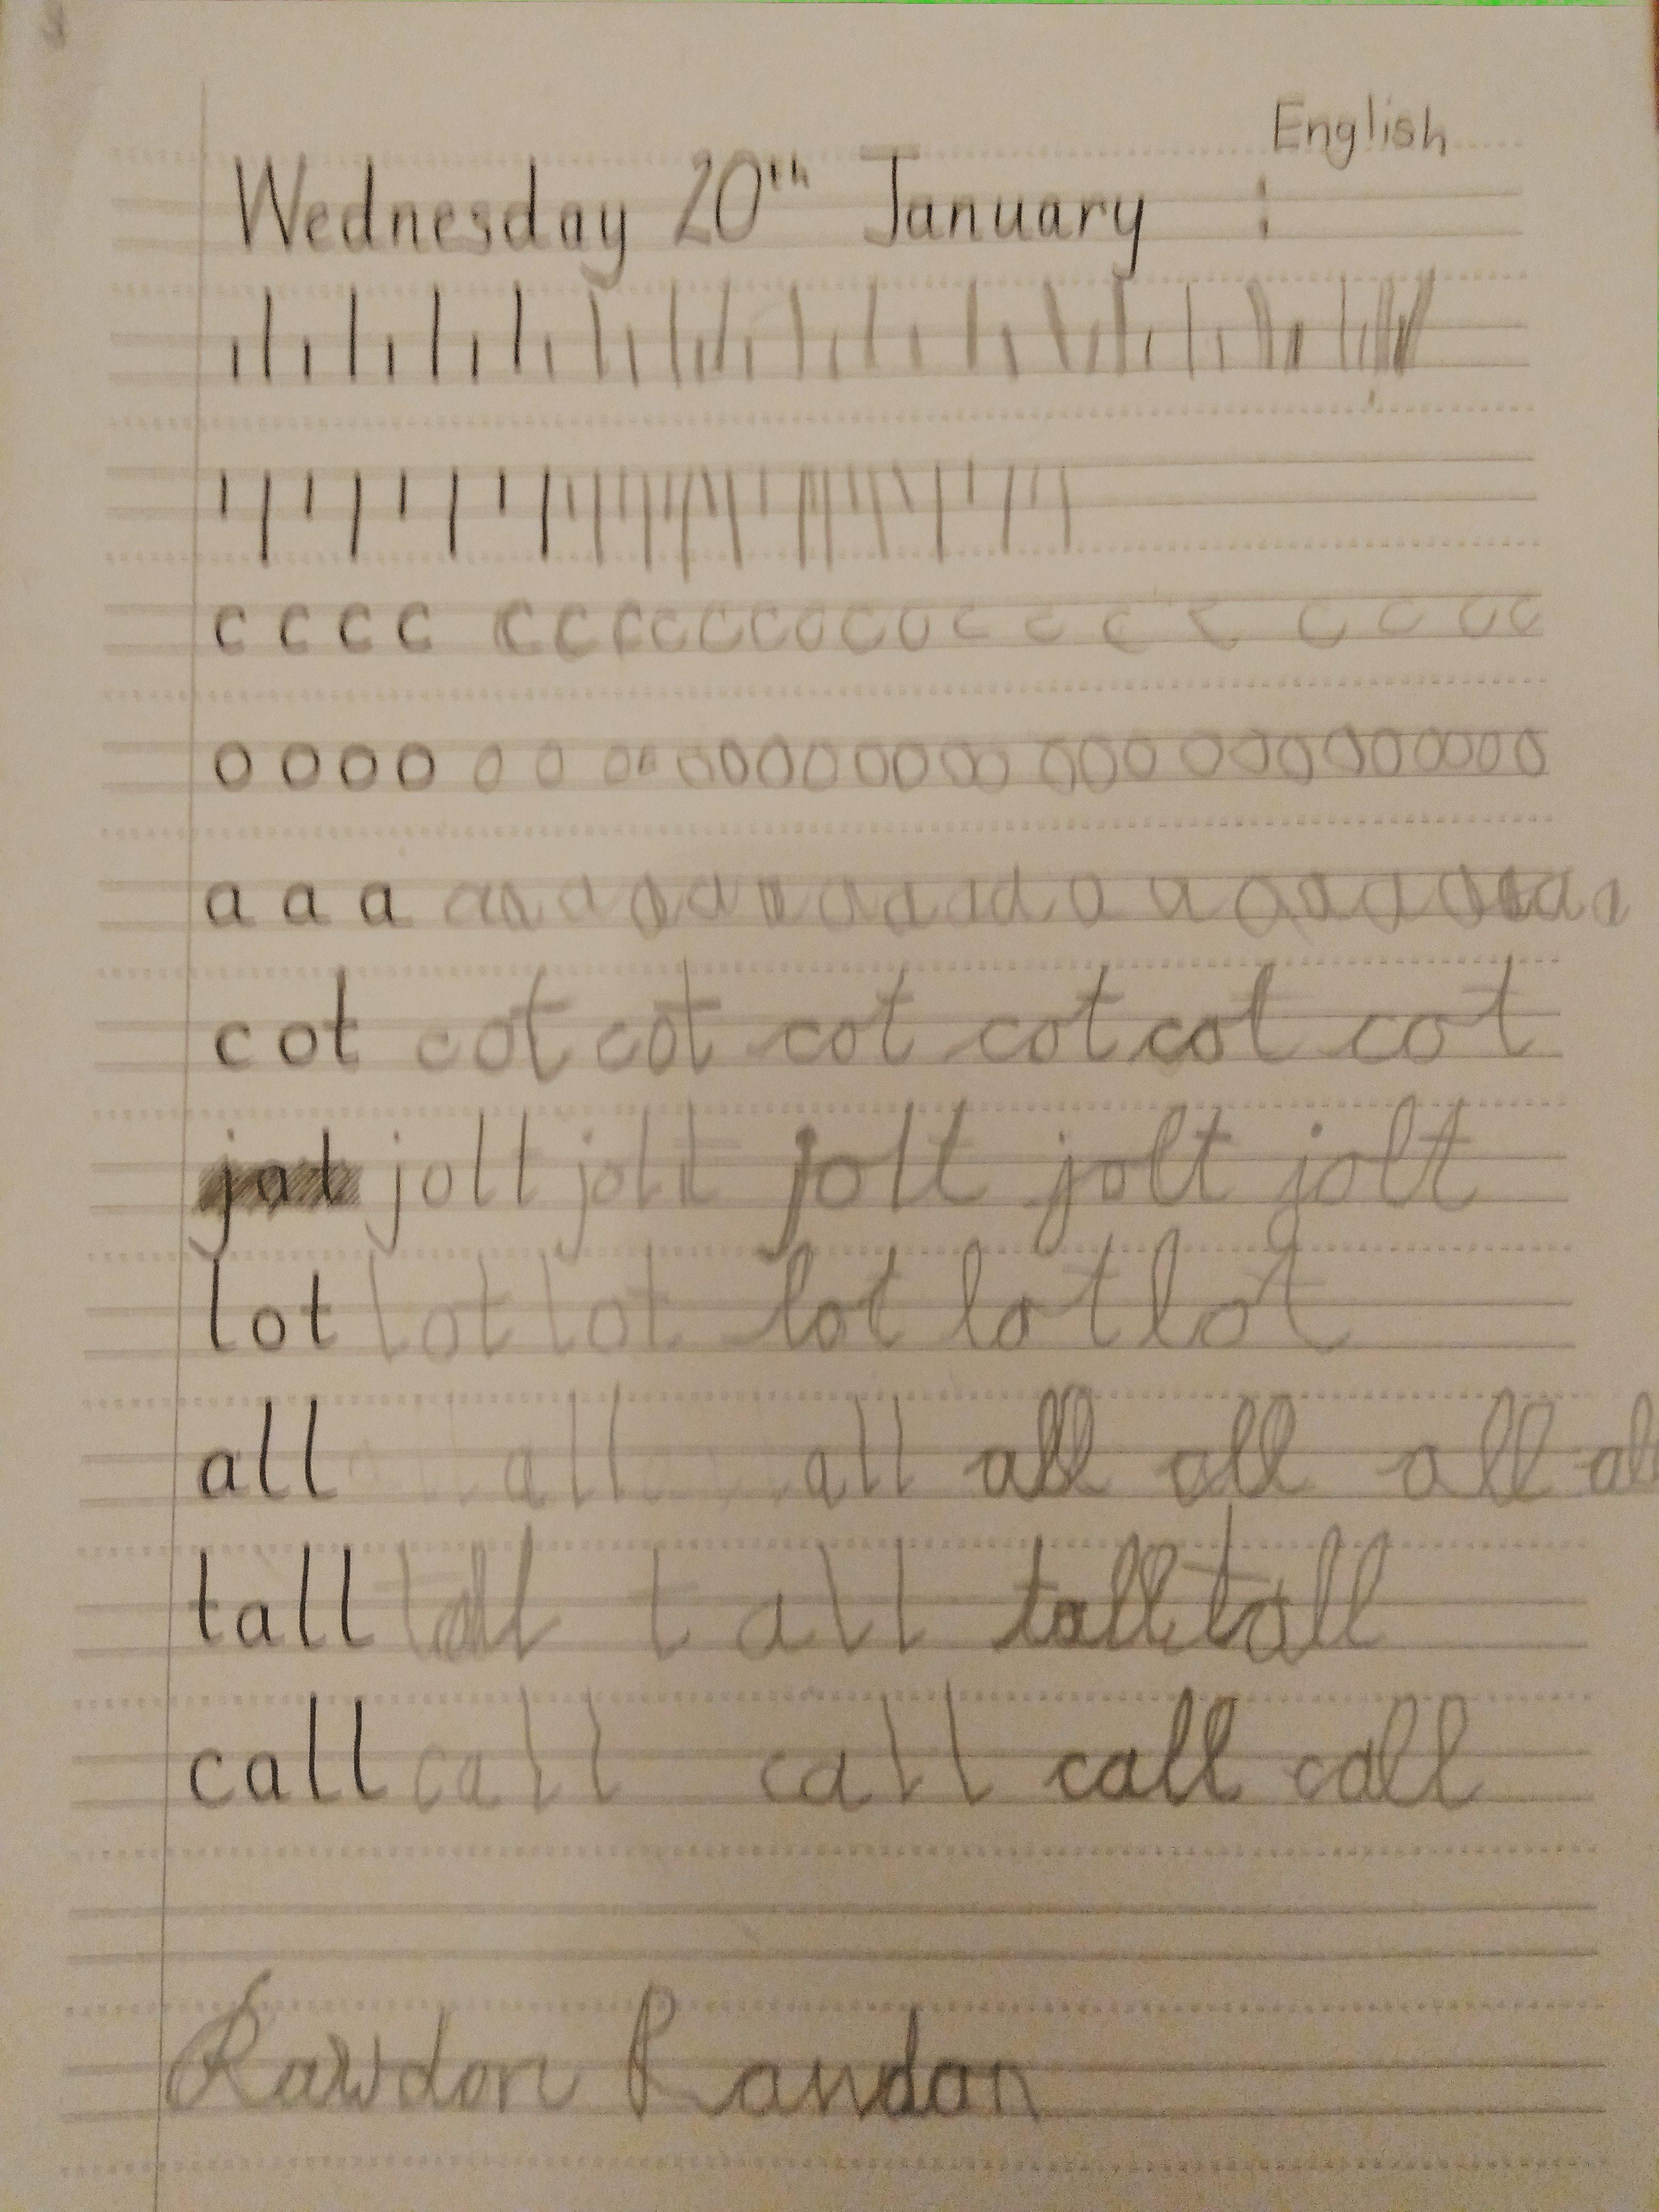 English
Wednesday 20th January :
c c c c c c c c c c c c c c c c c c c c c c
o o o o o o o o o o o o o o o o o o o o o o o o o o o o
a a a a a a a a a a a a a a a a a a a a a a a
cot cot cot cot cot cot cot
jot jolt jolt jolt jolt jolt
lot lot lot lot lot lot
all all all all all all all all
tall tall tall tall tall
call call call call call
Rawdon Rawdon